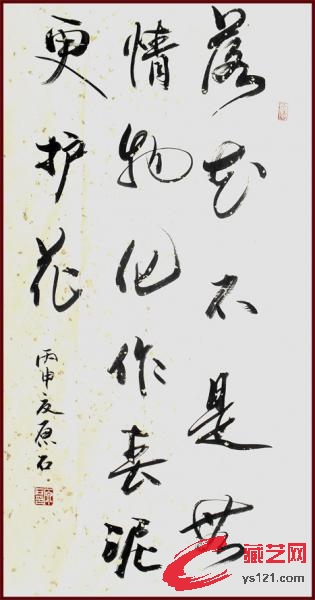 落花不是無
情物化作春泥
更护花
丙申夏原石
藏艺网
ys121.com